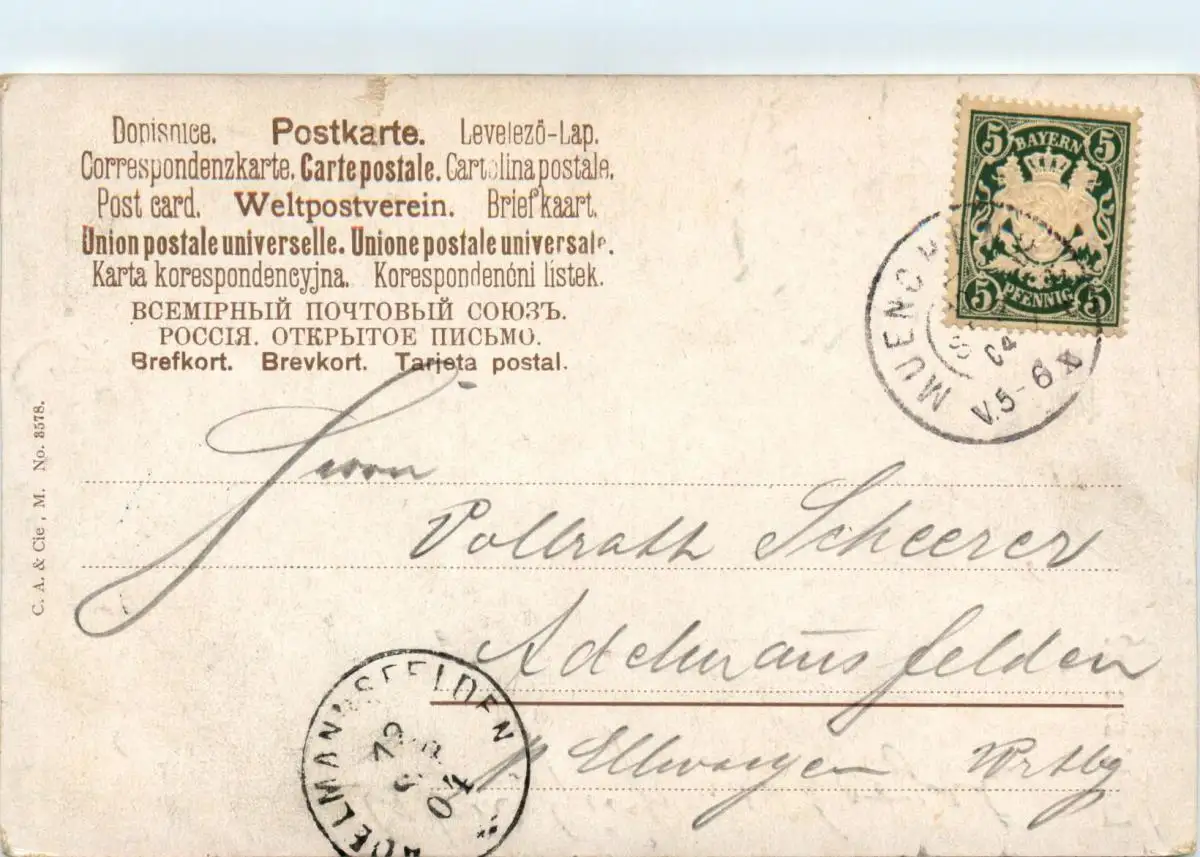 Dopisnice. Postkarte. Levelező-Lap.
Correspondenzkarte. Carte postale. Cartolina postale.
Post card. Weltpostverein. Briefkaart.
Union postale universelle. Unione postale universale.
Karta korespondencyjna. Korespondenčni lístek.
ВСЕМІРНЫЙ ПОЧТОВЫЙ СОЮЗЪ.
РОССІЯ. ОТКРЫТОЕ ПИСЬМО.
Brefkort. Brevkort. Tarjeta postal.
5 BAYERN 5
5 PFENNIG 5
MUENCH
04
V.5-6
C. A. & Cie, M. No. 3578.
Herrn
Vollrath Scheerer
Adelmansfelden
Ellwangen Wrtbg
ADELMANNSFELDEN
04